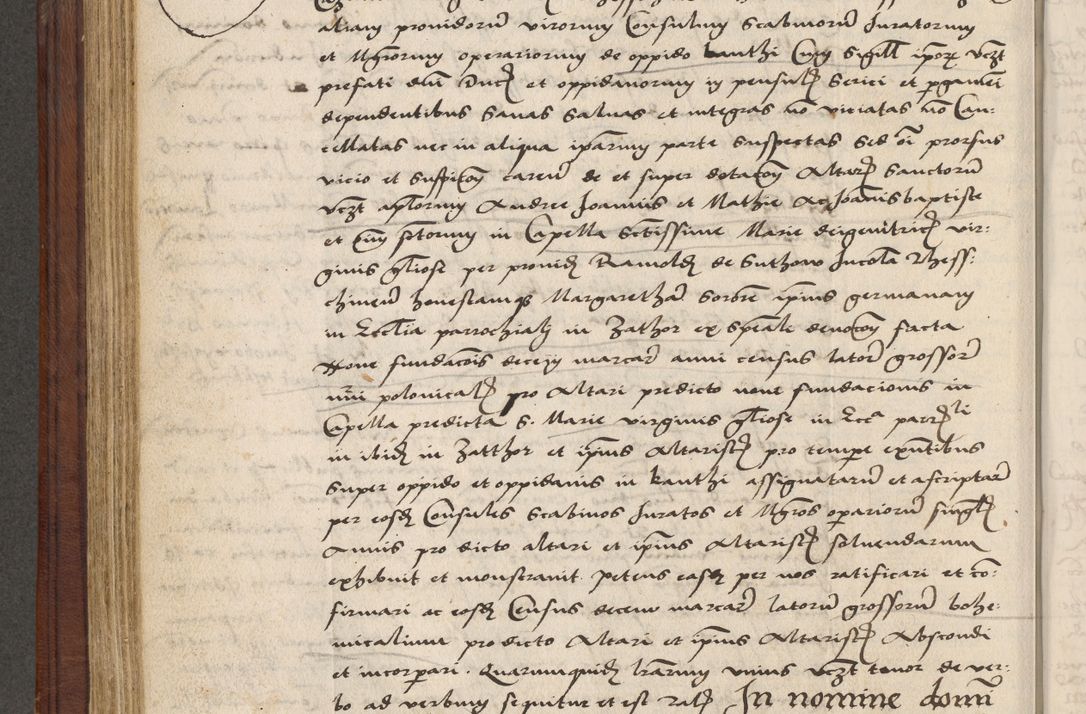 aliam providorum virorum Consulum Scabinorum Juratorum
et Mgrorum operariorum de oppido kanthi Cum Sigill ipor vczt
prefati dni Duc et oppidanorum in pensul Serici et pgameni
dependentibus Sanas Salvas et integras no viciatas no Can-
cellatas nec in aliqua iparum parte Suspectas Sed oi prorsus
vicio et Suspicon caren de et super dotacon Altar Sanctoru
vczt aplorum Andree Joannis et Mathie Ac Joannis baptiste
et eum storum in Capella Sctissime Marie deigenitric vir-
ginis gliose per provid Ramold de Suthow Incola
honestamq Margaretham Sororem ipius germanam
in Ecclia parrochiali in Zathor ex speale devocon facta
None fundacois decem marcar anni census lator grossor
nri polonical pro Altari predicto nove fundacionis in
Capella predicta S. Marie virginis gliose in Ecca parrli
in ibid in Zatthor et ipius Altarist pro tempe exntibus
super oppido et oppidanis in kanthi assignataru et ascriptar
per eosd Consules Scabinos Juratos et Mgros opariorum singl
Annis pro dicto altari et ipius Altarist solvendarum
exhibuit et monstravit. Petens easd per nos ratificari et co-
firmari ac eosd Census decem marcar latoru grossoru bohe-
micalium pro dicto Altari et ipius Altarist Abscondi
et incorpari. Quarumquid lrarum unius vczt tenor de ver-
bo ad verbum sequitur et est tal In nomine domi